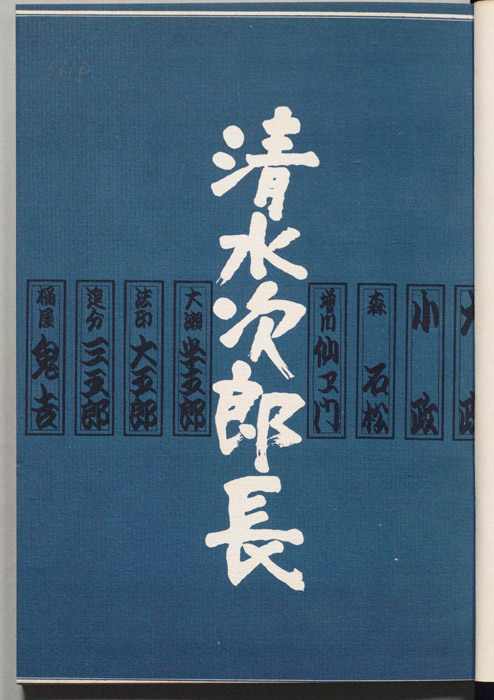 清水次郎長
小政
森 石松
増川 仙ヱ門
大瀬 半五郎
法印 大五郎
追分 三五郎
桶屋 鬼吉